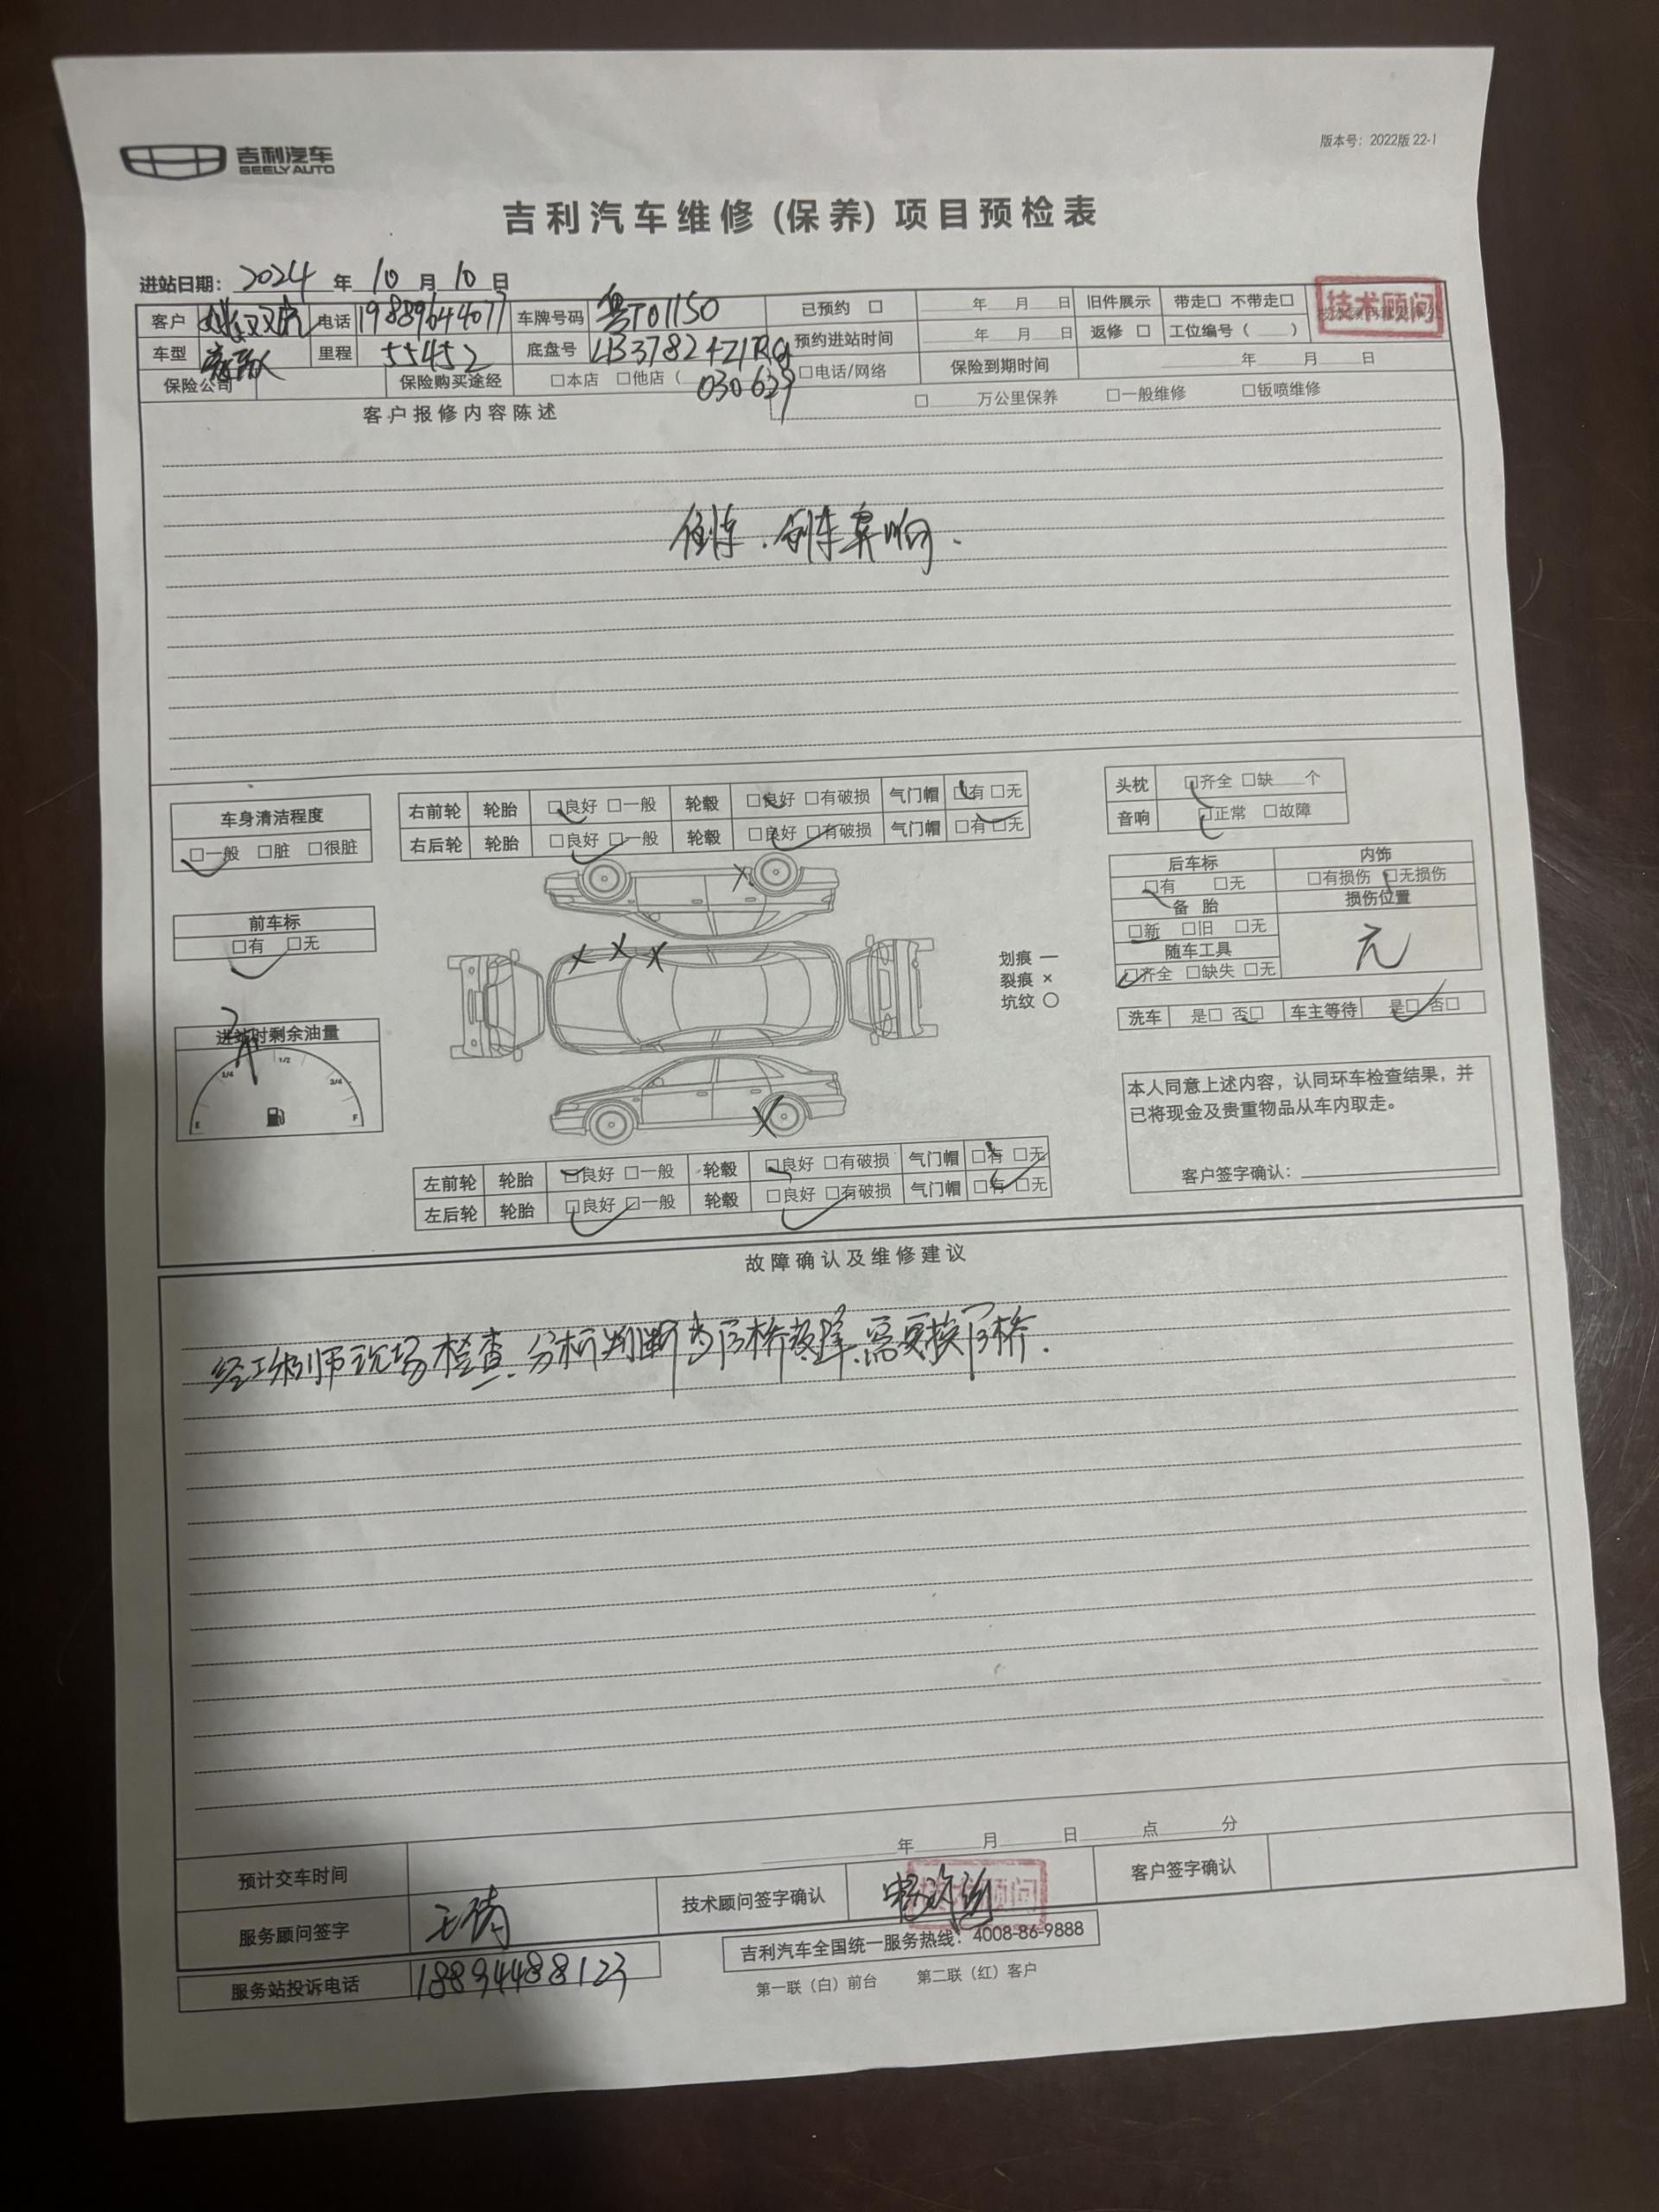 吉利汽车
GEELY AUTO
版本号：2022版 22-1
吉利汽车维修(保养)项目预检表
进站日期：2024 年 10 月 10 日
客户 电话 19889644077 车牌号码 鲁T01150 已预约 □ 年 月 日 旧件展示 带走□ 不带走□ 技术顾问
车型 里程 55452 底盘号 LB37824Z1RG 030629 预约进站时间 年 月 日 返修 □ 工位编号（ ）
保险公司 保险购买途经 □本店 □他店（ □电话/网络 保险到期时间 年 月 日
客户报修内容陈述 □ 万公里保养 □一般维修 □钣喷维修
倒车异响.
车身清洁程度
□一般 □脏 □很脏
右前轮 轮胎 □良好 □一般 轮毂 □良好 □有破损 气门帽 □有 □无
右后轮 轮胎 □良好 □一般 轮毂 □良好 □有破损 气门帽 □有 □无
头枕 □齐全 □缺 个
音响 □正常 □故障
后车标 内饰
□有 □无 □有损伤 □无损伤
备胎 损伤位置
□新 □旧 □无 无
随车工具
□齐全 □缺失 □无
前车标
□有 □无
划痕 —
裂痕 ×
坑纹 ○
洗车 是□ 否□ 车主等待 是□ 否□
进站时剩余油量
E 1/4 1/2 3/4 F
本人同意上述内容，认同环车检查结果，并
已将现金及贵重物品从车内取走。
客户签字确认：
左前轮 轮胎 □良好 □一般 轮毂 □良好 □有破损 气门帽 □有 □无
左后轮 轮胎 □良好 □一般 轮毂 □良好 □有破损 气门帽 □有 □无
故障确认及维修建议
经 师现场检查.分析判断为后桥故障.需更换后桥.
预计交车时间 年 月 日 点 分
服务顾问签字 王倩 技术顾问签字确认 技术顾问 客户签字确认
服务站投诉电话 18894488123 吉利汽车全国统一服务热线：4008-86-9888
第一联（白）前台 第二联（红）客户